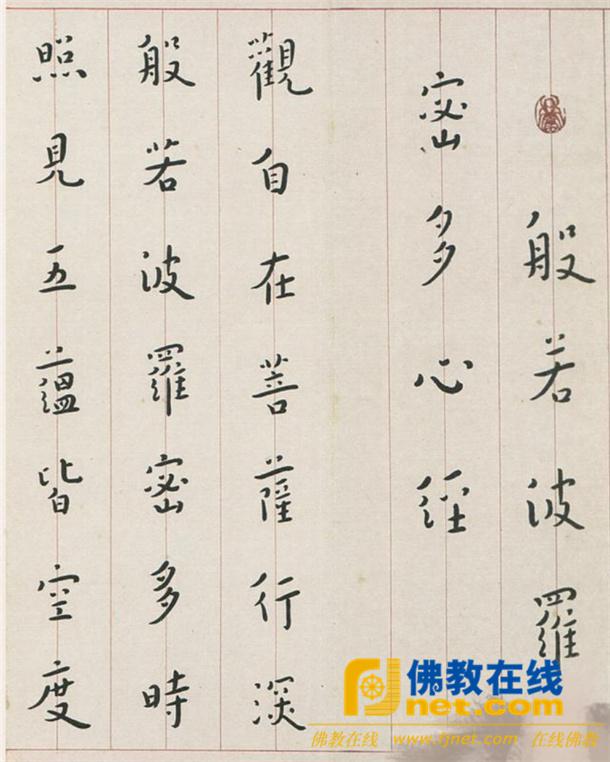 般若波羅
密多心經
觀自在菩薩行深
般若波羅密多時
照見五蘊皆空度
佛教在线
fjnet.com
佛教在线 www.fjnet.com 在线佛教